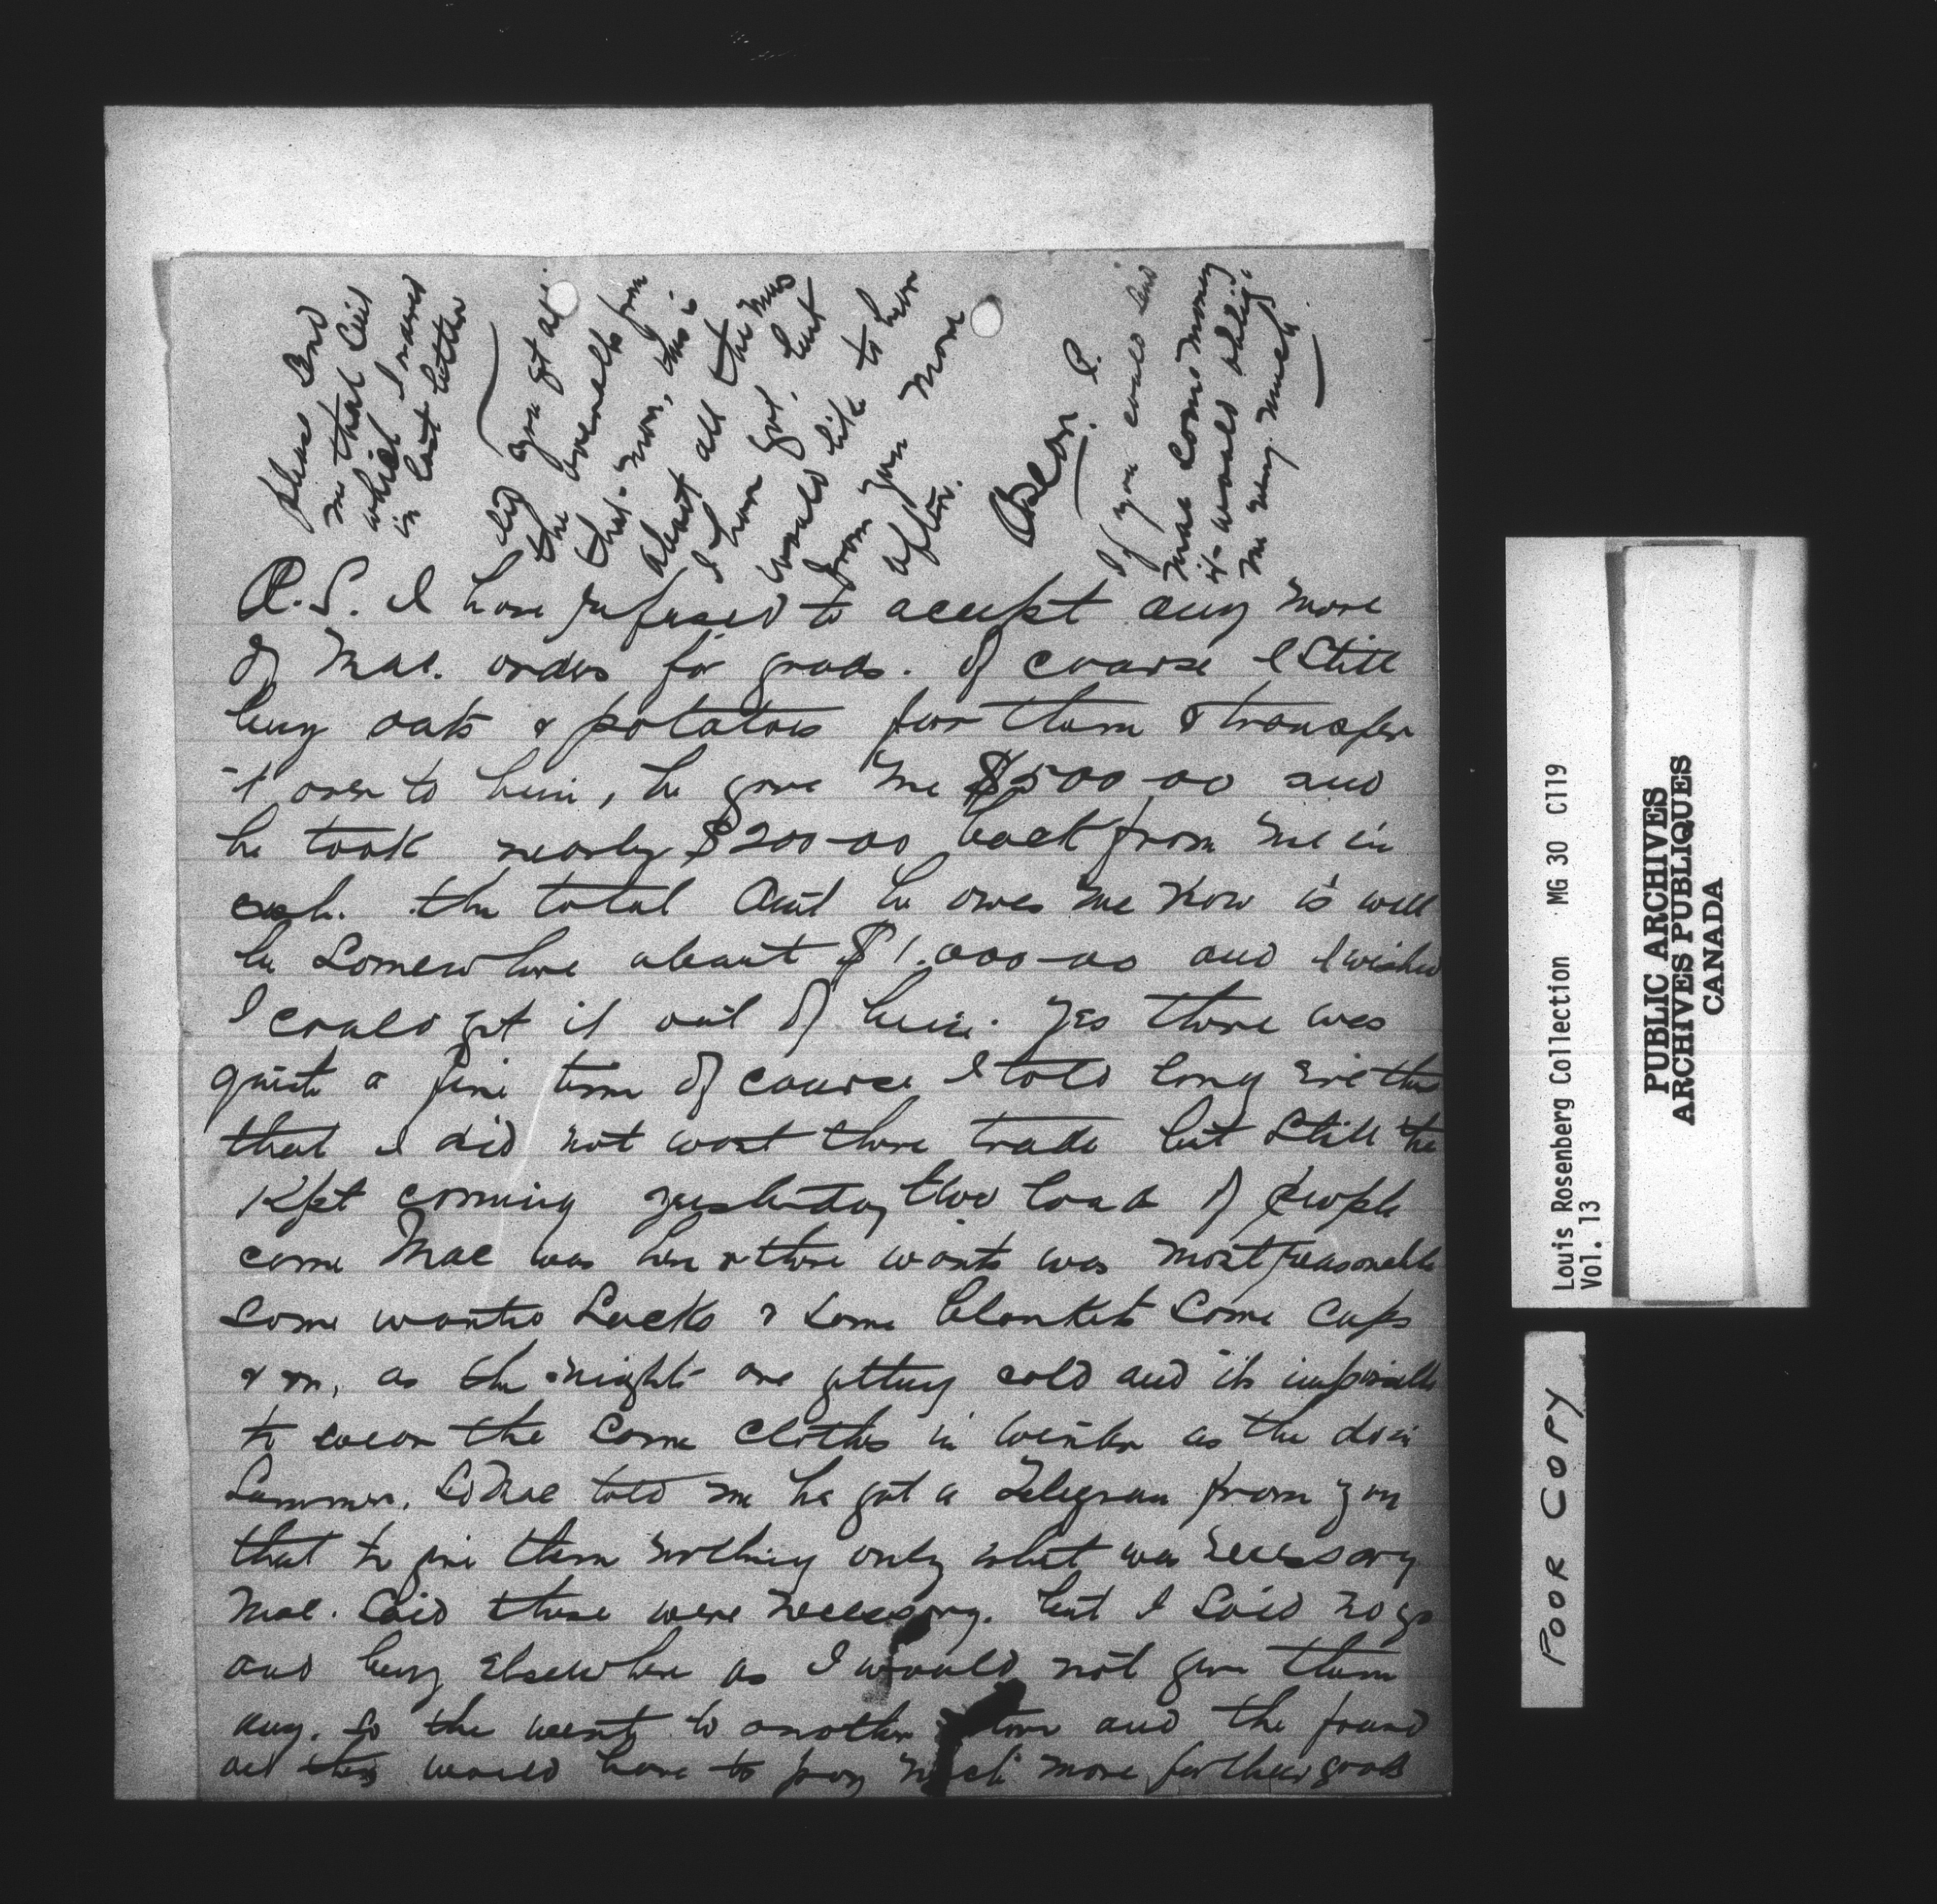 please send
me that Bill
which I named
in last letter
did you get all
the overalls from
that man, this is
about all the news
I have got, but
would like to hear
from you more
after.
P.
If you could send
Mac some money
it would oblige
me very much.
P.S. I have refused to accept any more
of Mac. orders for goods. of course I Still
buy oats & potatoes for them & transfer
it over to him, he gave me $500-00 and
he took nearly $200-00 back from me in
cash. the total Amt he owes me now is well
be Somewhere about $1.000-00 and I wished
I could get it out of him. Yes there was
quite a fine time of course I told long
that I did not want there trade but Still the
Kept coming yesterday two loads of people
come Mac was here & there wants was most reasonable
Some wanted Socks & Some Blankets Some Caps
& on, as the nights are getting cold and its impossible
to wear the Same Cloths in winter as the do in
Summer. So Mac told me he got a Telegram from you
that to give them nothing only what was necessary
Mac. Said these were necessary. but I Said no go
and buy Elsewhere as I would not give them
any. So the went to another Store and the found
out they would have to pay much more for their goods
Louis Rosenberg Collection MG 30 C119
Vol. 13
PUBLIC ARCHIVES
ARCHIVES PUBLIQUES
CANADA
POOR COPY